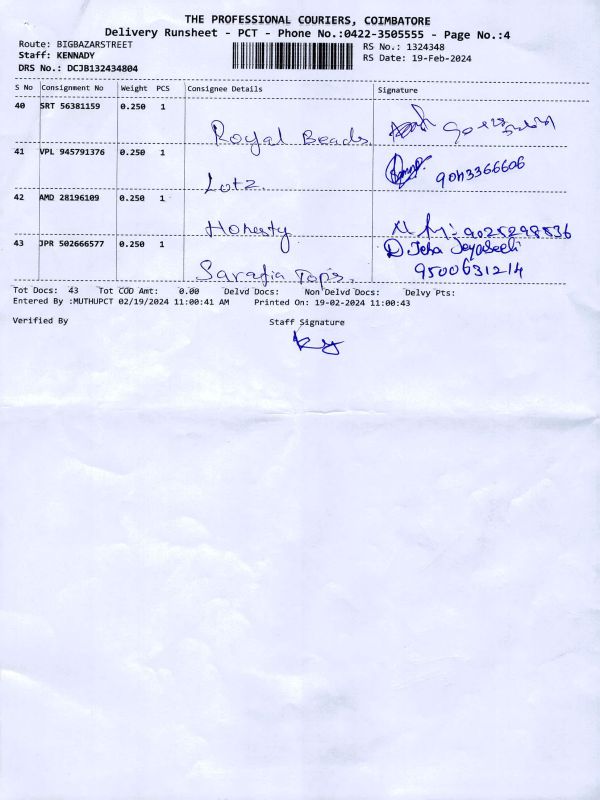 THE PROFESSIONAL COURIERS, COIMBATORE
Delivery Runsheet - PCT - Phone No.:0422-3505555 - Page No.:4
Route: BIGBAZARSTREET RS No.: 1324348
Staff: KENNADY RS Date: 19-Feb-2024
DRS No.: DCJB132434804
S No Consignment No Weight PCS Consignee Details Signature
40 SRT 56381159 0.250 1
Royal Beads
41 VPL 945791376 0.250 1
Lotz 9043366606
42 AMD 28196109 0.250 1
Honesty 9025298536
43 JPR 502666577 0.250 1 D. Jeba
Tops. 9500631214
Tot Docs: 43 Tot COD Amt: 0.00 Delvd Docs: Non Delvd Docs: Delvy Pts:
Entered By :MUTHUPCT 02/19/2024 11:00:41 AM Printed On: 19-02-2024 11:00:43
Verified By Staff Signature